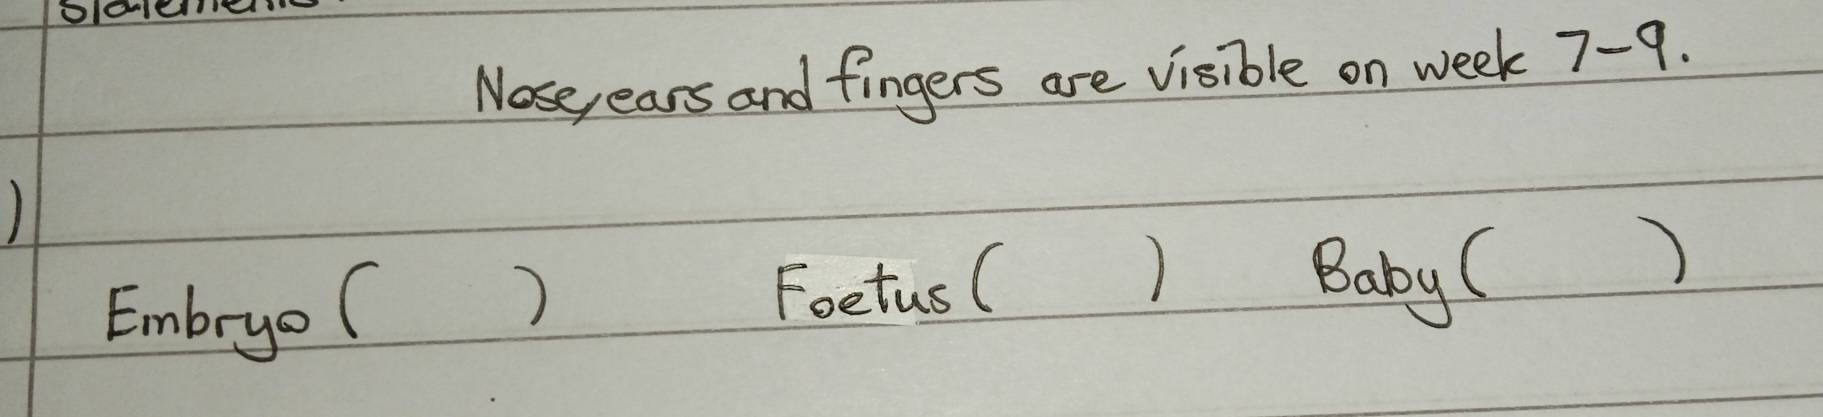 Nose, ears and fingers are visible on week 7-9.
)
Embryo ( ) Foetus ( ) Baby ( )